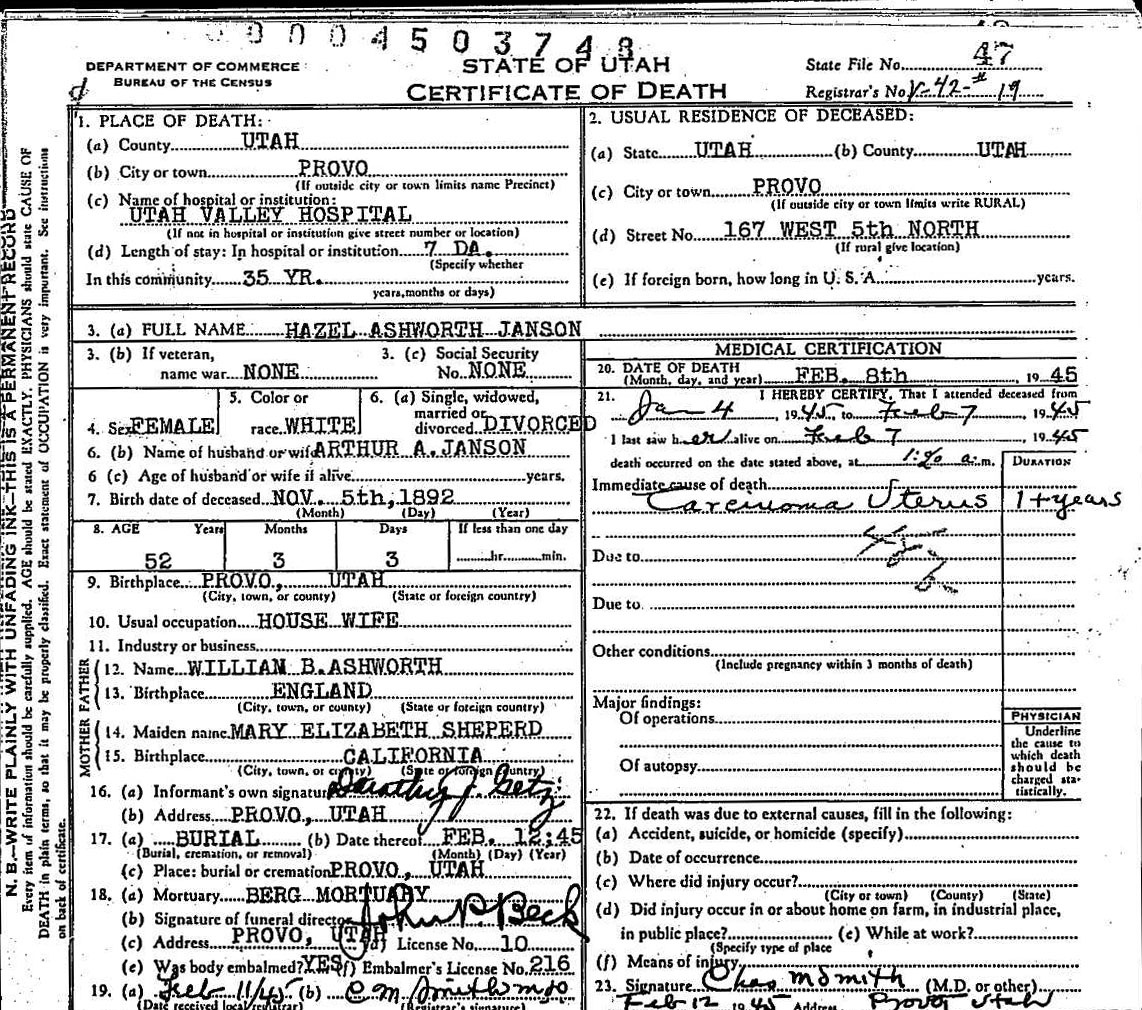 0004503748
DEPARTMENT OF COMMERCE
BUREAU OF THE CENSUS
STATE OF UTAH
CERTIFICATE OF DEATH
State File No. 47
Registrar's No. V-42-# 19
d
N. B.—WRITE PLAINLY WITH UNFADING INK—THIS IS A PERMANENT RECORD
Every item of information should be carefully supplied. AGE should be stated EXACTLY. PHYSICIANS should state CAUSE OF
DEATH in plain terms, so that it may be properly classified. Exact statement of OCCUPATION is very important. See instructions
on back of certificate.
1. PLACE OF DEATH:
(a) County UTAH
(b) City or town PROVO
(If outside city or town limits name Precinct)
(c) Name of hospital or institution:
UTAH VALLEY HOSPITAL
(If not in hospital or institution give street number or location)
(d) Length of stay: In hospital or institution 7 DA.
(Specify whether
In this community 35 YR.
years, months or days)
2. USUAL RESIDENCE OF DECEASED:
(a) State UTAH (b) County UTAH
(c) City or town PROVO
(If outside city or town limits write RURAL)
(d) Street No. 167 WEST 5th NORTH
(If rural give location)
(e) If foreign born, how long in U. S. A. years.
3. (a) FULL NAME HAZEL ASHWORTH JANSON
3. (b) If veteran, name war NONE
3. (c) Social Security No. NONE
4. Sex FEMALE
5. Color or race WHITE
6. (a) Single, widowed, married or divorced DIVORCED
6. (b) Name of husband or wife ARTHUR A. JANSON
6 (c) Age of husband or wife if alive years.
7. Birth date of deceased NOV. 5th, 1892
(Month) (Day) (Year)
8. AGE Years Months Days If less than one day
52 3 3 hr. min.
9. Birthplace PROVO, UTAH
(City, town, or county) (State or foreign country)
10. Usual occupation HOUSE WIFE
11. Industry or business
FATHER
12. Name WILLIAN B. ASHWORTH
13. Birthplace ENGLAND
(City, town, or county) (State or foreign country)
MOTHER
14. Maiden name MARY ELIZABETH SHEPERD
15. Birthplace CALIFORNIA
(City, town, or county) (State or foreign country)
16. (a) Informant's own signature Dorothy J. Getz
(b) Address PROVO, UTAH
17. (a) BURIAL (b) Date thereof FEB. 12;45
(Burial, cremation, or removal) (Month) (Day) (Year)
(c) Place: burial or cremation PROVO, UTAH
18. (a) Mortuary BERG MORTUARY
(b) Signature of funeral director John P. Beck
(c) Address PROVO, UTAH (d) License No. 10
(e) Was body embalmed? YES (f) Embalmer's License No. 216
19. (a) Feb 11/45 (b) C M Smith MD
(Date received local registrar) (Registrar's signature)
MEDICAL CERTIFICATION
20. DATE OF DEATH
(Month, day, and year) FEB. 8th, 1945
21. I HEREBY CERTIFY, That I attended deceased from
Jan 4, 1945, to Feb 7, 1945
I last saw her alive on Feb 7, 1945
death occurred on the date stated above, at a. m.
DURATION
Immediate cause of death
Carcinoma Uterus 1+years
Due to
Due to
Other conditions
(Include pregnancy within 3 months of death)
Major findings:
Of operations
Of autopsy
PHYSICIAN
Underline
the cause to
which death
should be
charged sta-
tistically.
22. If death was due to external causes, fill in the following:
(a) Accident, suicide, or homicide (specify)
(b) Date of occurrence
(c) Where did injury occur?
(City or town) (County) (State)
(d) Did injury occur in or about home on farm, in industrial place,
in public place? (e) While at work?
(Specify type of place
(f) Means of injury
23. Signature Chas M Smith (M.D. or other)
Feb 12 1945 Address Provo Utah